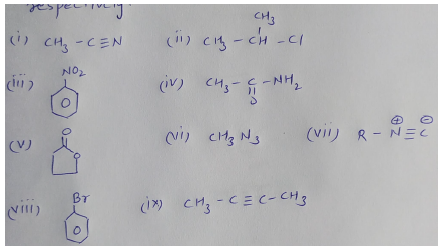 respectively.
(i) CH₃ - C ≡ N (ii) CH₃ - CH - Cl
CH₃
(iii) NO₂ (iv) CH₃ - C - NH₂
O
(v) O O (vi) CH₃ N₃ (vii) R - N ≡ C
⊕ ⊖
(viii) Br (ix) CH₃ - C ≡ C - CH₃